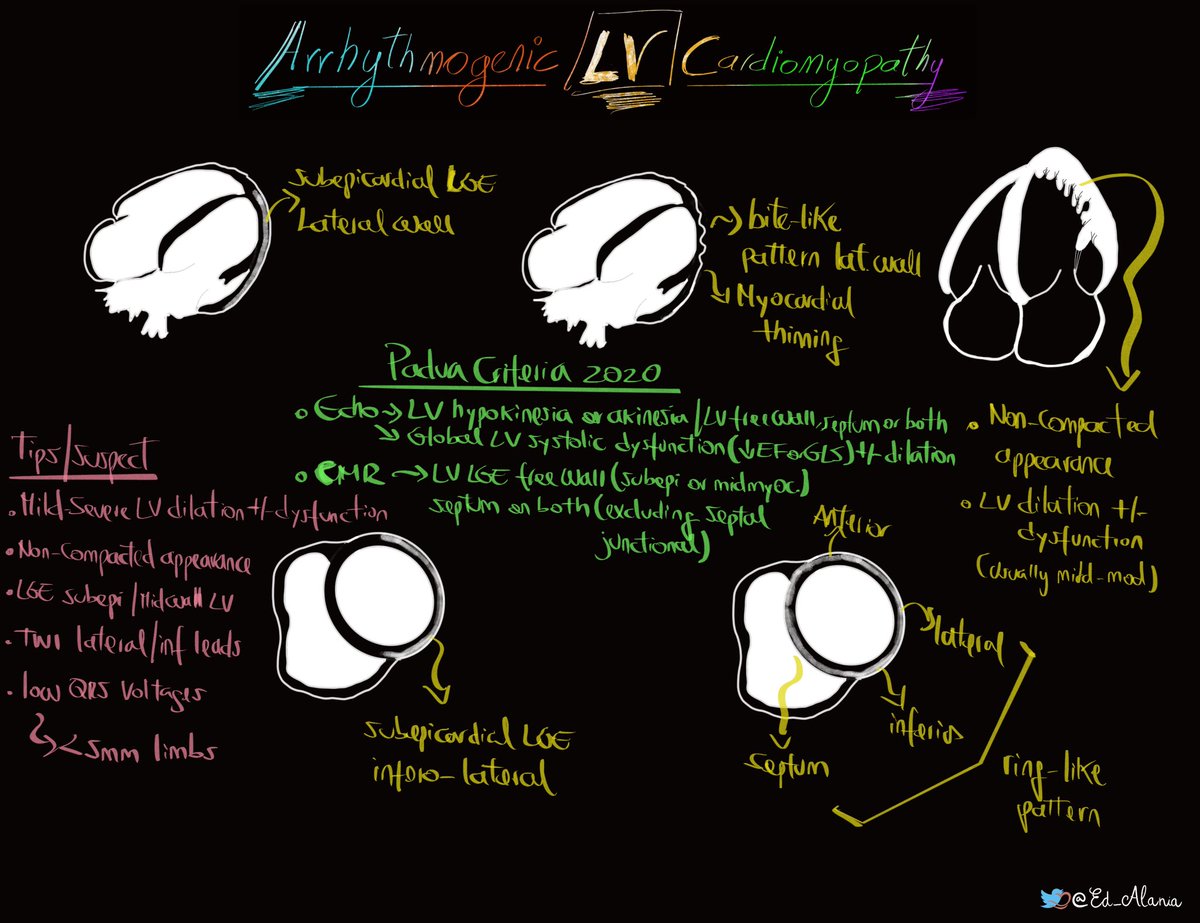 Arrhythmogenic LV Cardiomyopathy
subepicardial LGE
Lateral wall
bite-like
pattern lat. wall
Myocardial
thinning
Padua Criteria 2020
Echo → LV hypokinesia or akinesia / LV free wall, septum or both
Global LV systolic dysfunction (↓EF or GLS) +/- dilation
CMR → LV LGE free wall (subepi or midmyoc.)
septum or both (excluding septal
junctional)
Non-Compacted
appearance
LV dilation +/-
dysfunction
(usually mild-mod)
Tips/suspect
Mild-Severe LV dilation +/- dysfunction
Non-Compacted appearance
LGE subepi / Midwall LV
TWI lateral/inf leads
low QRS voltages
<5mm limbs
subepicardial LGE
infero-lateral
Anterior
lateral
inferior
septum
ring-like
pattern
@Ed_Alania